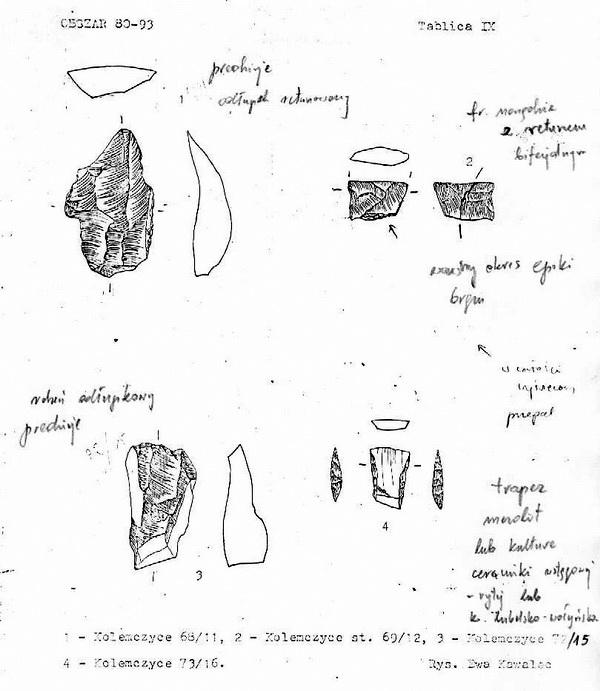 OBSZAR 80-93
Tablica IX
predzieje
1
odłupek retuszowany
fr. narzędzia
z retuszem
bifacjalnym
2
wczesny okres epoki
brązu
w całości
przepał
rdzeń odłupkowy
predzieje
trapez
mezolit
lub kultura
ceramiki wstęgowej
- rytej lub
k. lubelsko-wołyńska
4
3
1 - Kolemczyce 68/11, 2 - Kolemczyce st. 69/12, 3 - Kolemczyce 72/15
4 - Kolemczyce 73/16.
Rys. Ewa Kawalec